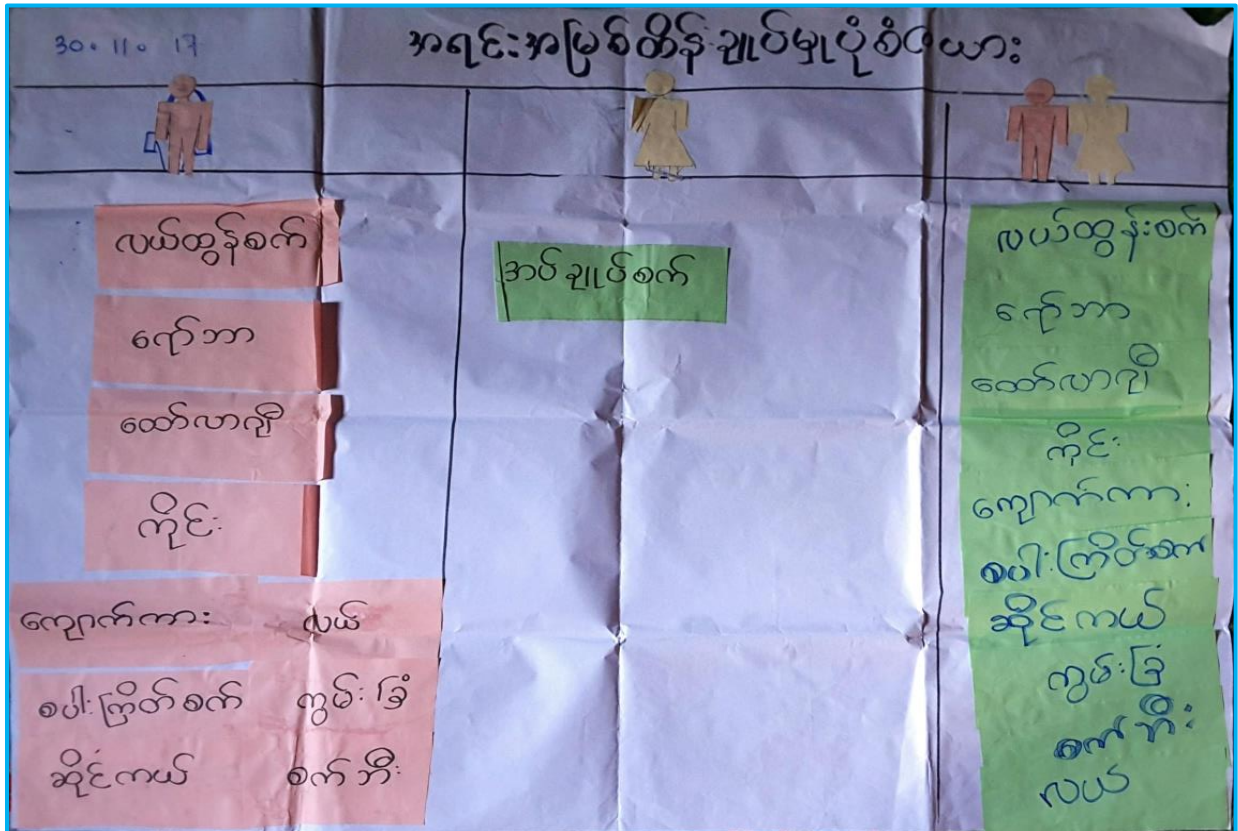 30.11.17
အရင်းအမြစ်ထိန်းချုပ်မှုပုံစံဇယား
လယ်ထွန်စက်
ရော်ဘာ
ထော်လာဂျီ
ကိုင်း
ကျောက်ကား
လယ်
စပါးကြိတ်စက်
ကွမ်းခြံ
ဆိုင်ကယ်
စက်ဘီး
အပ်ချုပ်စက်
လယ်ထွန်းစက်
ရော်ဘာ
ထော်လာဂျီ
ကိုင်း
ကျောက်ကား
စပါးကြိတ်စက်
ဆိုင်ကယ်
ကွမ်းခြံ
စက်ဘီး
လယ်